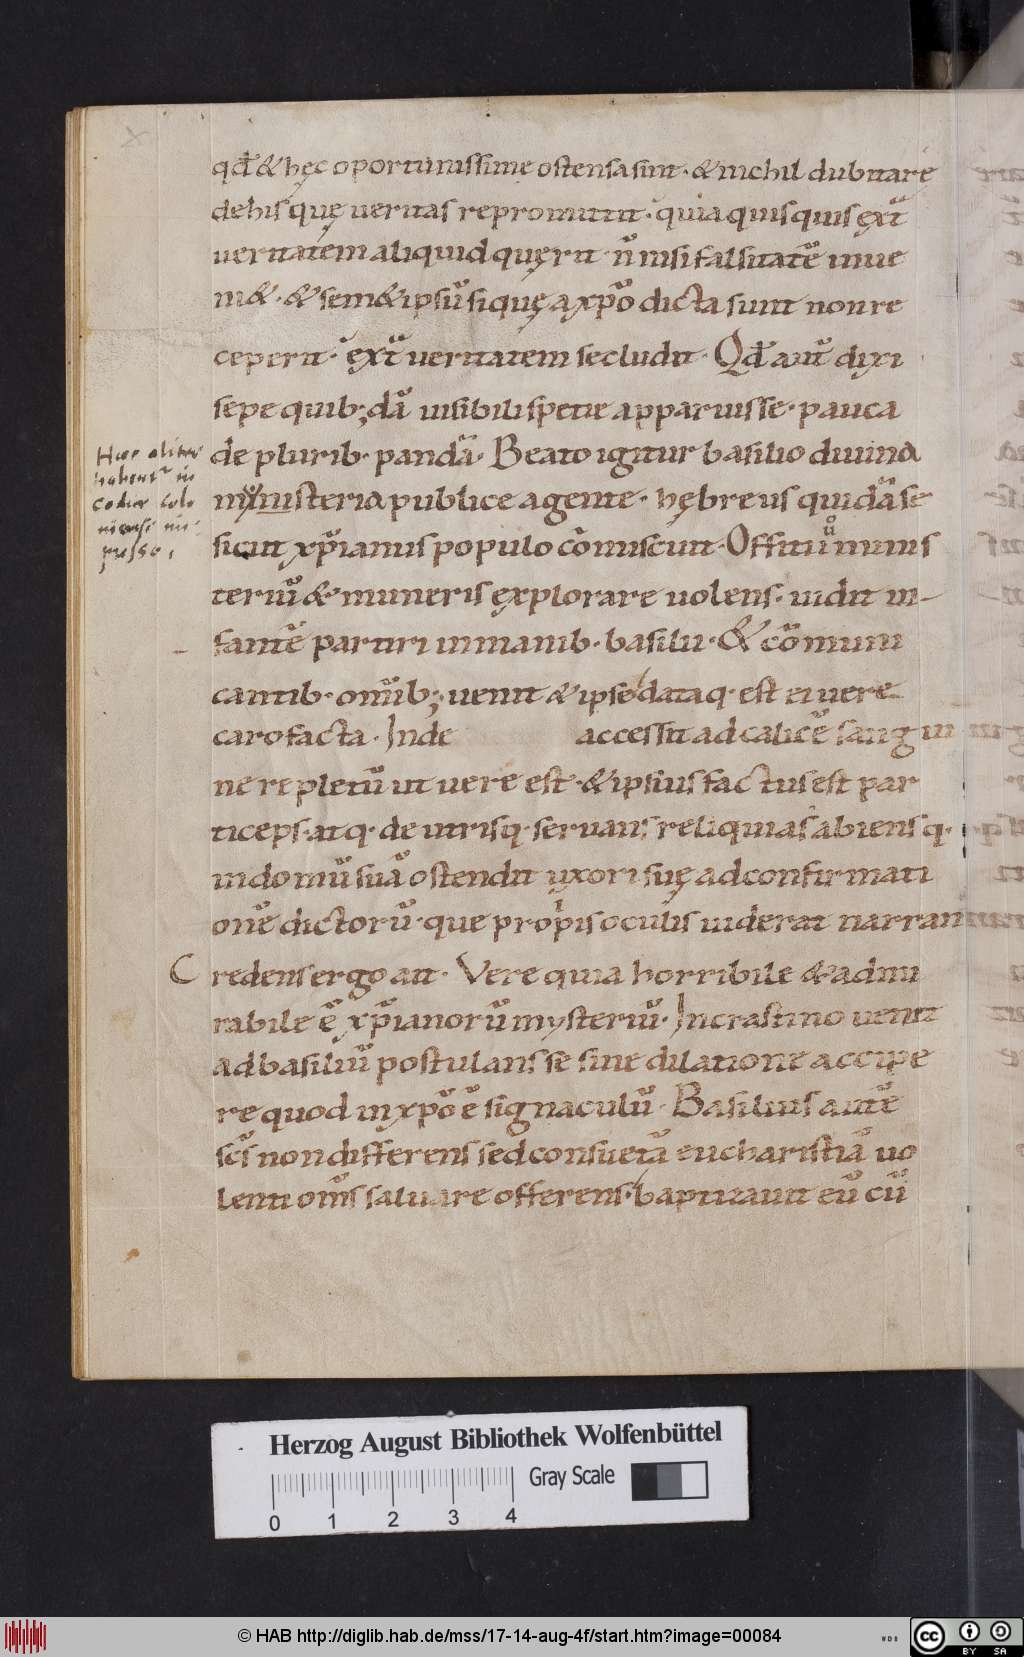 qđ & hęc oportunissime ostensa sint · & nichil dubitare
de his quę ueritas repromittit · quia quisquis ext̄
ueritatem aliquid quęrit · n̄ nisi falsitatē inue
ni& · & sem&ipsū siquę a xp̄o dicta sunt non re
ceperit · ext̄ ueritatem secludit · Qđ aut̄ dixi
sepe quib; dā uisibili spetie apparuisse · pauca
de plurib · pandā · Beato igitur basilio diuina
mynisteria publice agente · hębreus quidā se
sicut xp̄ianus populo cōmiscuit · Offitiū minis
teriū & muneris explorare uolens · uidit in-
fantē partiri in manib · basilii · & cōmuni
cantib · omīb; uenit & ipse dataq · est ei uere
caro facta · Inde accessit ad calicē sangui
ne repletū ut uere est · & ipsius factus est par
ticeps · atq · de utrisq · seruans reliquias abiens q ·
in domū suā ostendit uxori suę ad confirmati
onē dictorū · que propiis oculis uiderat narran
Credens ergo ait · Vere quia horribile & admi
rabile ē xp̄ianorū mysteriū · In crastino uenit
ad basiliū postulans se sine dilatione accipe
re quod in xp̄o ē signaculū · Basilius autē
sc̄s non differens sed consuetā eucharistiā uo
lenti om̄s saluare offerens · baptizauit eū cū
Hæc aliter
habent<sup>r</sup> in
codice colo
niensi im-
presso,
Herzog August Bibliothek Wolfenbüttel
Gray Scale
0 1 2 3 4
© HAB http://diglib.hab.de/mss/17-14-aug-4f/start.htm?image=00084
WDB
CC BY SA